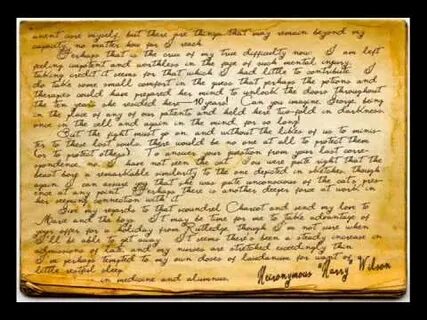 avent core myself, but there are things that may remain beyond my
capacity, no matter how far I reach.
Perhaps that is the crux of my true difficulty now. I am left
feeling impotent and worthless in the face of such mental injury,
taking credit it seems for that which I had little to contribute. I
do take some small comfort in the guess that perhaps the potions and
therapies could have prepared her mind to unlock the doors throughout
the ten years she resided here—10 years! Can you imagine George, being
in the place of any of our patients and held here two-fold in darkness
once in the cell and again in the mind for so long
But the fight must go on and without the likes of us to minis-
ter to these lost souls, there would be no one at all to protect them
(or to protect others). To answer your question from your last corre-
spondence, no, I have not seen the cat. You were quite right that the
beast bore a remarkable similarity to the one depicted in sketches, though
again I can assure you that she was quite unconscious of the cat's pres-
ence at any point. Perhaps there is another deeper force at work in
her seeming connection with it
Give my regards to that scoundrel Charcot and send my love to
Marie and the boys. It may be time for me to take advantage of
your offer for a holiday from Rutledge, though I'm not sure when
I'll be able to get away. It seems there's been a steady increase in
admissions of late and my nurses are stretched exceedingly thin.
I'm perhaps tempted to my own doses of laudanum for want of
little restful sleep.
in medicine and alumnus,
Heironymous "Harry" Wilson